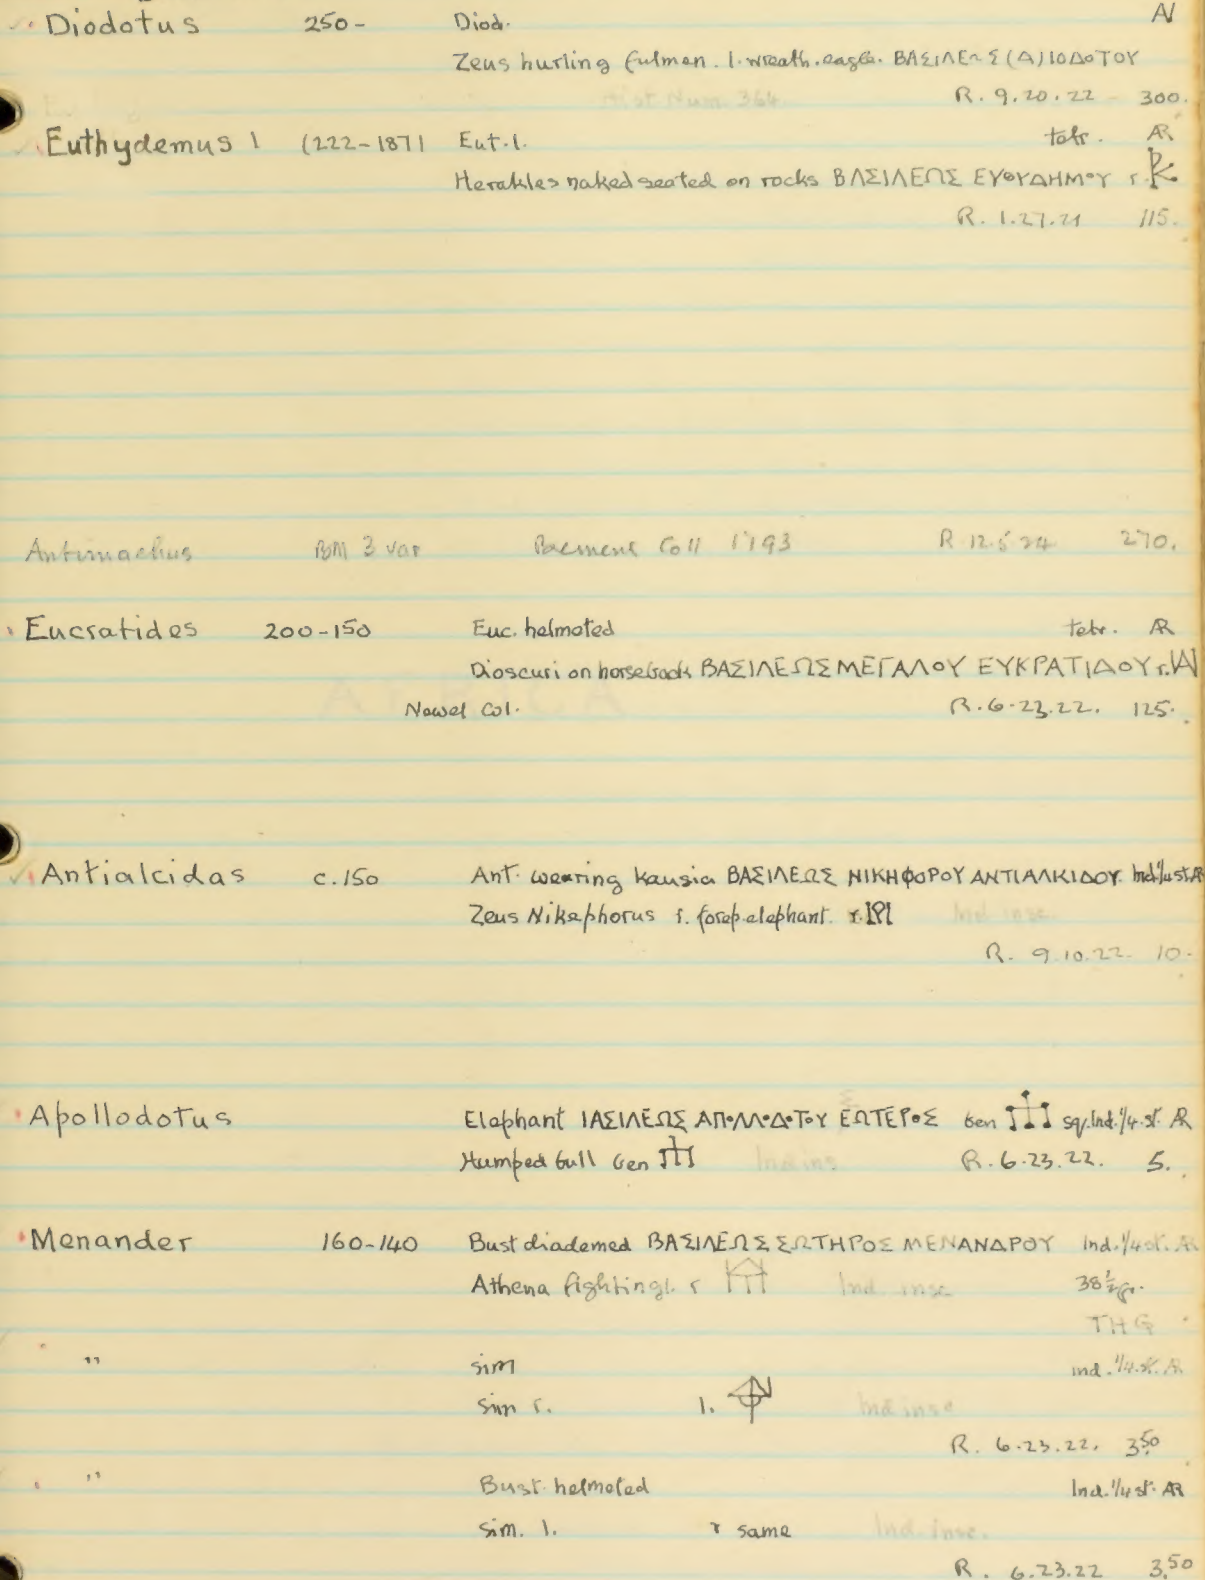 Diodotus 250- Diod. AV
Zeus hurling fulmen. l. wreath. eagle. ΒΑΣΙΛΕΩΣ (Δ)ΙΟΔΟΤΟΥ
Hist Num. 364 R. 9.20.22 - 300.
Euthydemus 1 (222-187) Eut. l. tetr. AR
Herakles naked seated on rocks ΒΑΣΙΛΕΩΣ ΕΥΘΥΔΗΜΟΥ r.
R. 1.27.21 115.
Antimachus BM 3 var Coll 1793 R 12.5.24 270.
Eucratides 200-150 Euc. helmeted tetr. AR
Dioscuri on horseback ΒΑΣΙΛΕΩΣ ΜΕΓΑΛΟΥ ΕΥΚΡΑΤΙΔΟΥ r.
Newel Col. R. 6-23.22. 125.
Antialcidas c.150 Ant. wearing kausia ΒΑΣΙΛΕΩΣ ΝΙΚΗΦΟΡΟΥ ΑΝΤΙΑΛΚΙΔΟΥ. Ind. 1/4 st. AR
Zeus Nikephorus r. forep. elephant. r. Ind insc.
R. 9.10.22. 10.
Apollodotus Elephant ΙΑΣΙΛΕΩΣ ΑΠΟΛΛΟΔΟΤΟΥ ΕΩΤΕΡΟΣ ben sq. Ind. 1/4 st. AR
Humped bull ben Ind ins R. 6.23.22. 5.
Menander 160-140 Bust diademed ΒΑΣΙΛΕΩΣ ΣΩΤΗΡΟΣ ΜΕΝΑΝΔΡΟΥ Ind. 1/4 st. AR
Athena fighting l. r Ind. insc 38½ gr.
THG
" sim ind. 1/4 st. AR
sim r. l. Ind insc
R. 6.23.22. 3.50
" Bust helmeted Ind. 1/4 st. AR
sim. l. r same Ind. insc.
R. 6.23.22 3.50